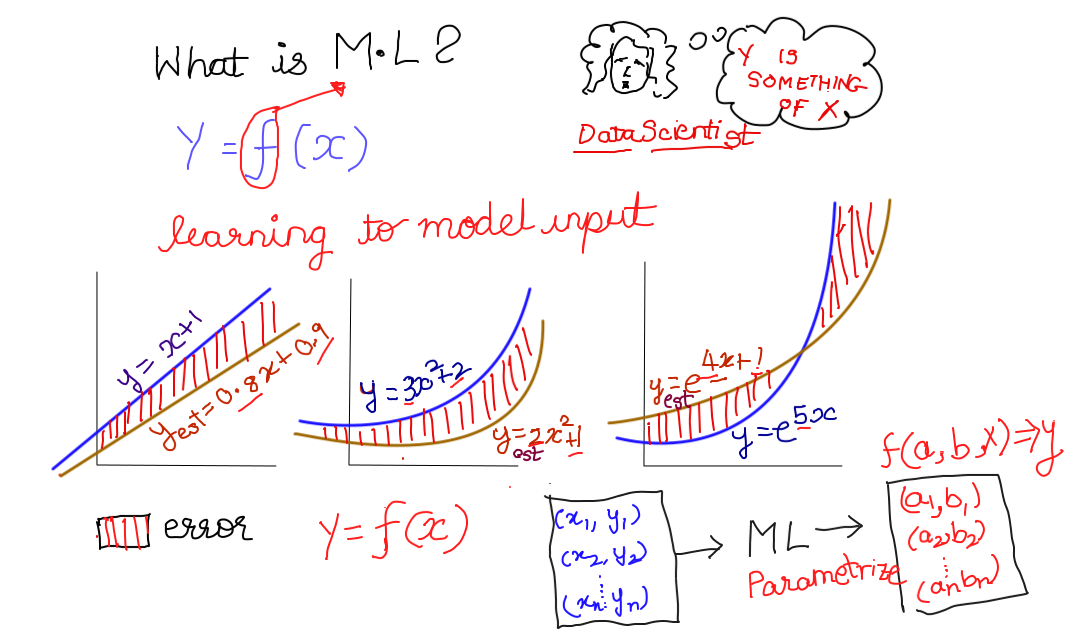 What is M.L?
Y = f(x)
Y IS
SOMETHING
OF X
Data Scientist
learning to model input
y = x+1
yest = 0.8x+0.9
y = 3x²+2
yest = 2x²+1
yest = e^4x+1
y = e^5x
error
Y = f(x)
(x1, y1)
(x2, y2)
⋮
(xn, yn)
ML
Parametrize
f(a,b,x) ⇒ y
(a1, b1)
(a2, b2)
⋮
(an bn)